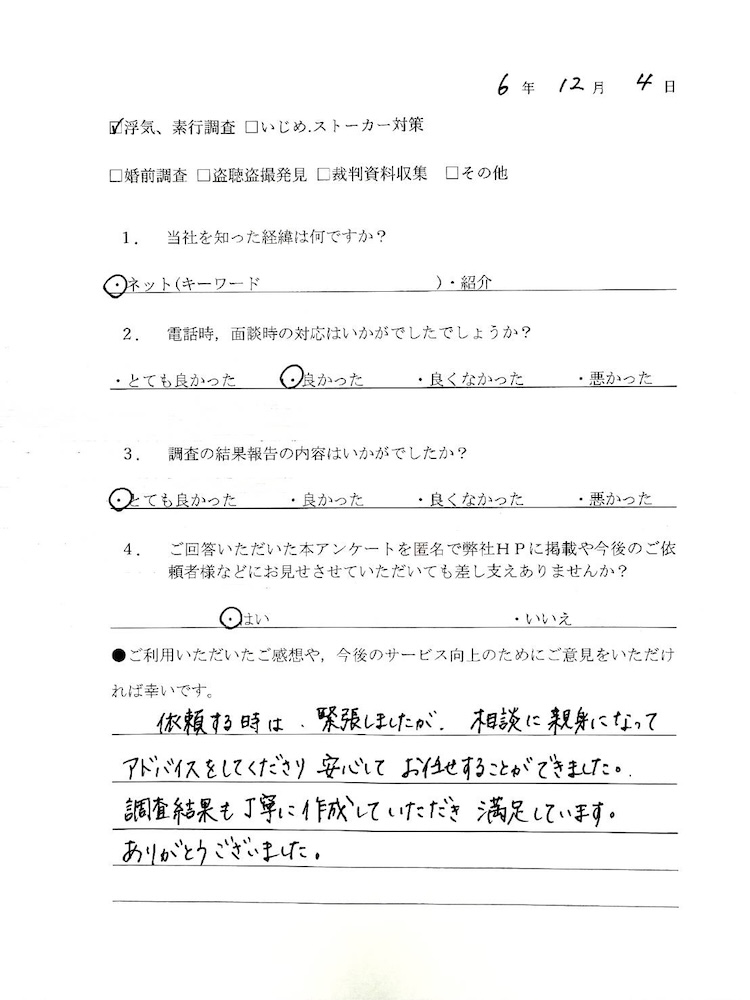 6年 12月 4日
☑浮気、素行調査 □いじめ.ストーカー対策
□婚前調査 □盗聴盗撮発見 □裁判資料収集 □その他
1. 当社を知った経緯は何ですか？
・ネット(キーワード )・紹介
2. 電話時，面談時の対応はいかがでしたでしょうか？
・とても良かった ・良かった ・良くなかった ・悪かった
3. 調査の結果報告の内容はいかがでしたか？
・とても良かった ・良かった ・良くなかった ・悪かった
4. ご回答いただいた本アンケートを匿名で弊社ＨＰに掲載や今後のご依
頼者様などにお見せさせていただいても差し支えありませんか？
・はい ・いいえ
●ご利用いただいたご感想や，今後のサービス向上のためにご意見をいただけ
れば幸いです。
依頼する時は、緊張しましたが、相談に親身になって
アドバイスをしてくださり 安心して お任せすることができました。
調査結果も丁寧に作成していただき 満足しています。
ありがとうございました。